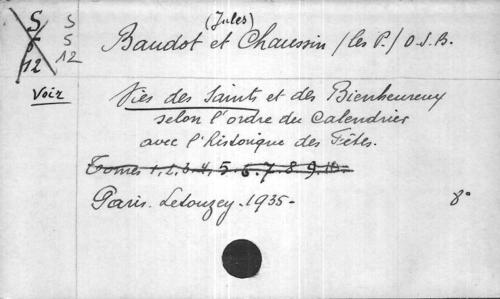 S
5
12
S
5
12
Voir
(Jules)
Baudot et Chaussin / les P. / O.S.B.
Vies des Saints et des Bienheureux
selon l'ordre du Calendrier
avec l'Historique des Fêtes.
Tomes 1, 2, 3, 4, 5. 6. 7. 8. 9. 10.
Paris. Letouzey. 1935-
8°